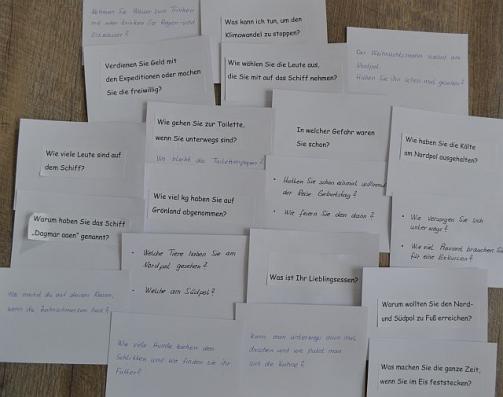 Nehmen Sie Wasser zum Trinken
mit oder trinken Sie Regen- und
Eiswasser?
Was kann ich tun, um den
Klimawandel zu stoppen?
Der Weihnachtsmann wohnt am
Nordpol.
Haben Sie ihn schon mal gesehen?
Verdienen Sie Geld mit
den Expeditionen oder machen
Sie die freiwillig?
Wie wählen Sie die Leute aus,
die Sie mit auf das Schiff nehmen?
Wie gehen Sie zur Toilette,
wenn Sie unterwegs sind?
Wo bleibt das Toilettenpapier?
In welcher Gefahr waren
Sie schon?
Wie haben Sie die Kälte
am Nordpol ausgehalten?
Wie viele Leute sind auf
dem Schiff?
• Hatten Sie schon einmal während
der Reise Geburtstag?
• Wie feiern Sie den dann?
Wie viel kg haben Sie auf
Grönland abgenommen?
• Wie versorgen Sie sich
unterwegs?
• Wie viel Proviant brauchen Sie
für eine Exkursion?
Warum haben Sie das Schiff
„Dagmar aaen" genannt?
• Welche Tiere haben Sie am
Nordpol gesehen?
• Welche am Südpol?
Was ist Ihr Lieblingsessen?
Was machst du auf deinen Reisen,
wenn du Zahnschmerzen hast?
Warum wollten Sie den Nord-
und Südpol zu Fuß erreichen?
Wie viele Hunde ziehen den
Schlitten und wo finden sie ihr
Futter?
Kann man unterwegs auch mal
duschen und wo putzt man
sich die Zähne?
Was machen Sie die ganze Zeit,
wenn Sie im Eis feststecken?